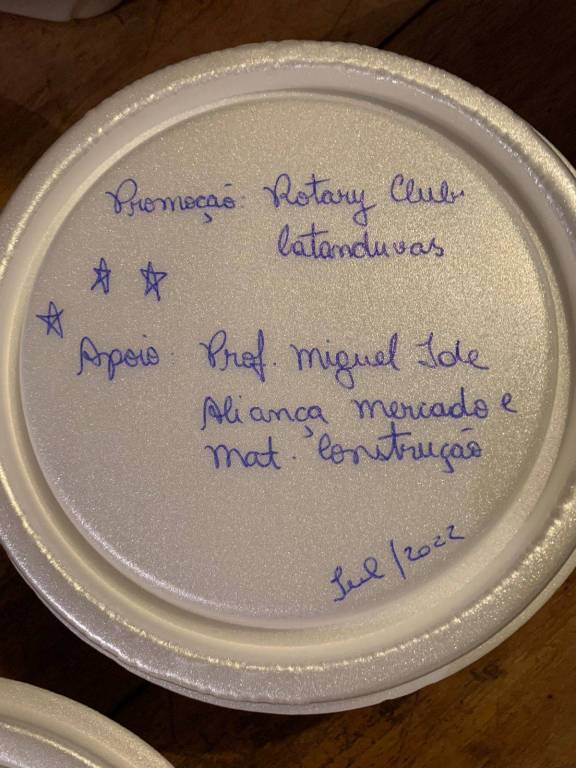 Promoção: Rotary Club
Catanduvas
Apoio: Prof. Miguel Ide
Aliança mercado e
mat. Construção
Jul/2022